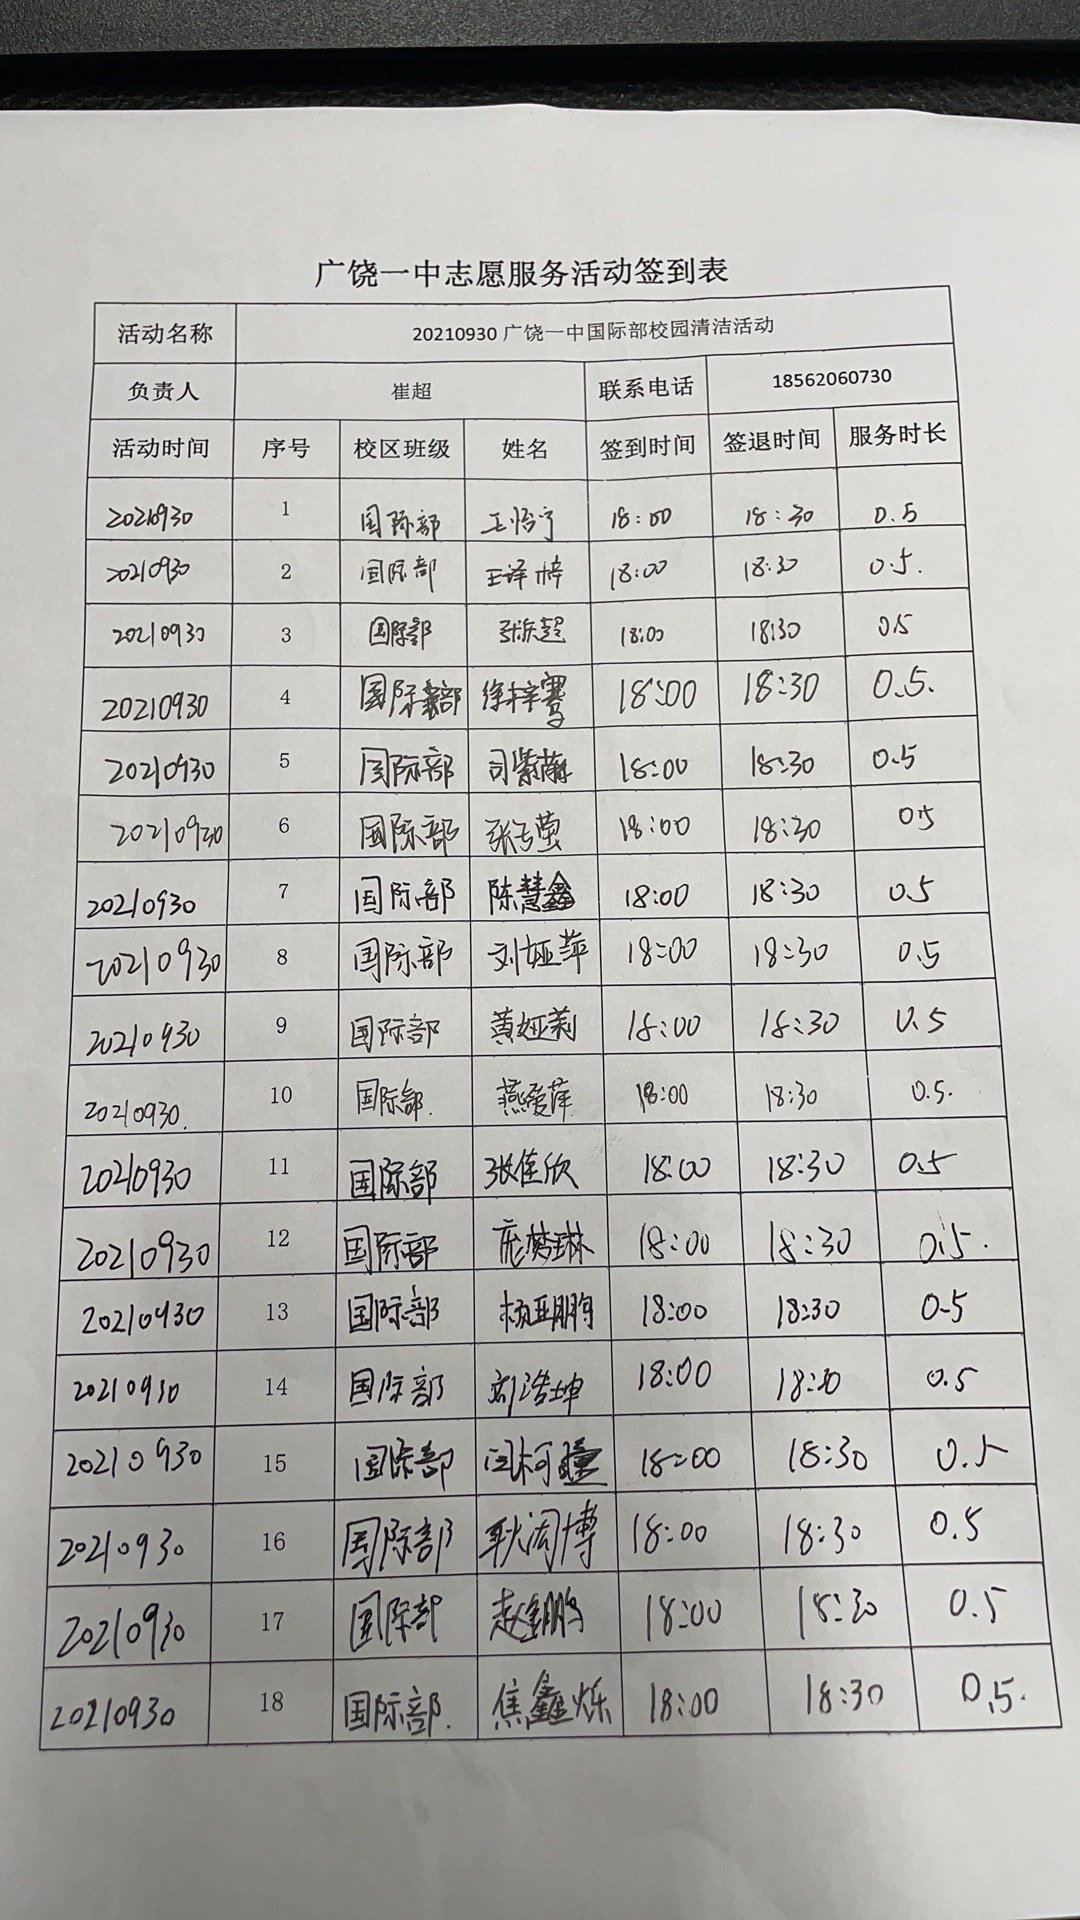 广饶一中志愿服务活动签到表
活动名称 20210930 广饶一中国际部校园清洁活动
负责人 崔超 联系电话 18562060730
活动时间 序号 校区班级 姓名 签到时间 签退时间 服务时长
20210930 1 国际部 王怡宁 18:00 18:30 0.5
20210930 2 国际部 王译梓 18:00 18:30 0.5.
20210930 3 国际部 18:00 18:30 0.5
20210930 4 国际部 徐梓骞 18:00 18:30 0.5.
20210930 5 国际部 司紫 18:00 18:30 0.5
20210930 6 国际部 18:00 18:30 0.5
20210930 7 国际部 陈慧鑫 18:00 18:30 0.5
20210930 8 国际部 刘娅萍 18:00 18:30 0.5
20210930 9 国际部 黄娅莉 18:00 18:30 0.5
20210930. 10 国际部. 燕爱萍 18:00 18:30 0.5.
20210930 11 国际部 张佳欣 18:00 18:30 0.5
20210930 12 国际部 庞梦琳 18:00 18:30 0.5.
20210930 13 国际部 杨亚鹏 18:00 18:30 0.5
20210930 14 国际部 刘浩坤 18:00 18:30 0.5
20210930 15 国际部 18:00 18:30 0.5
20210930 16 国际部 耿闻博 18:00 18:30 0.5
20210930 17 国际部 18:00 18:30 0.5
20210930 18 国际部. 焦鑫烁 18:00 18:30 0.5.